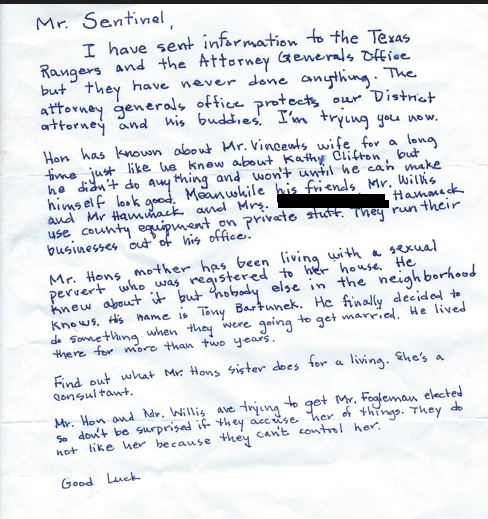 Mr. Sentinel,
I have sent information to the Texas
Rangers and the Attorney Generals Office
but they have never done anything. The
attorney generals office protects our District
attorney and his buddies. I'm trying you now.
Hon has known about Mr. Vincents wife for a long
time just like he knew about Kathy Clifton, but
he didn't do anything and won't until he can make
himself look good. Meanwhile his friends Mr. Willis
and Mr Hammack and Mrs. Hammack
use county equipment on private stuff. They run their
businesses out of his office.
Mr. Hons mother has been living with a sexual
pervert who was registered to her house. He
knew about it but nobody else in the neighborhood
knows. His name is Tony Bartunek. He finally decided to
do something when they were going to get married. He lived
there for more than two years.
Find out what Mr. Hons sister does for a living. She's a
consultant.
Mr. Hon and Mr. Willis are trying to get Mr. Fogleman elected
so don't be surprised if they accuse her of things. They do
not like her because they can't control her.
Good Luck